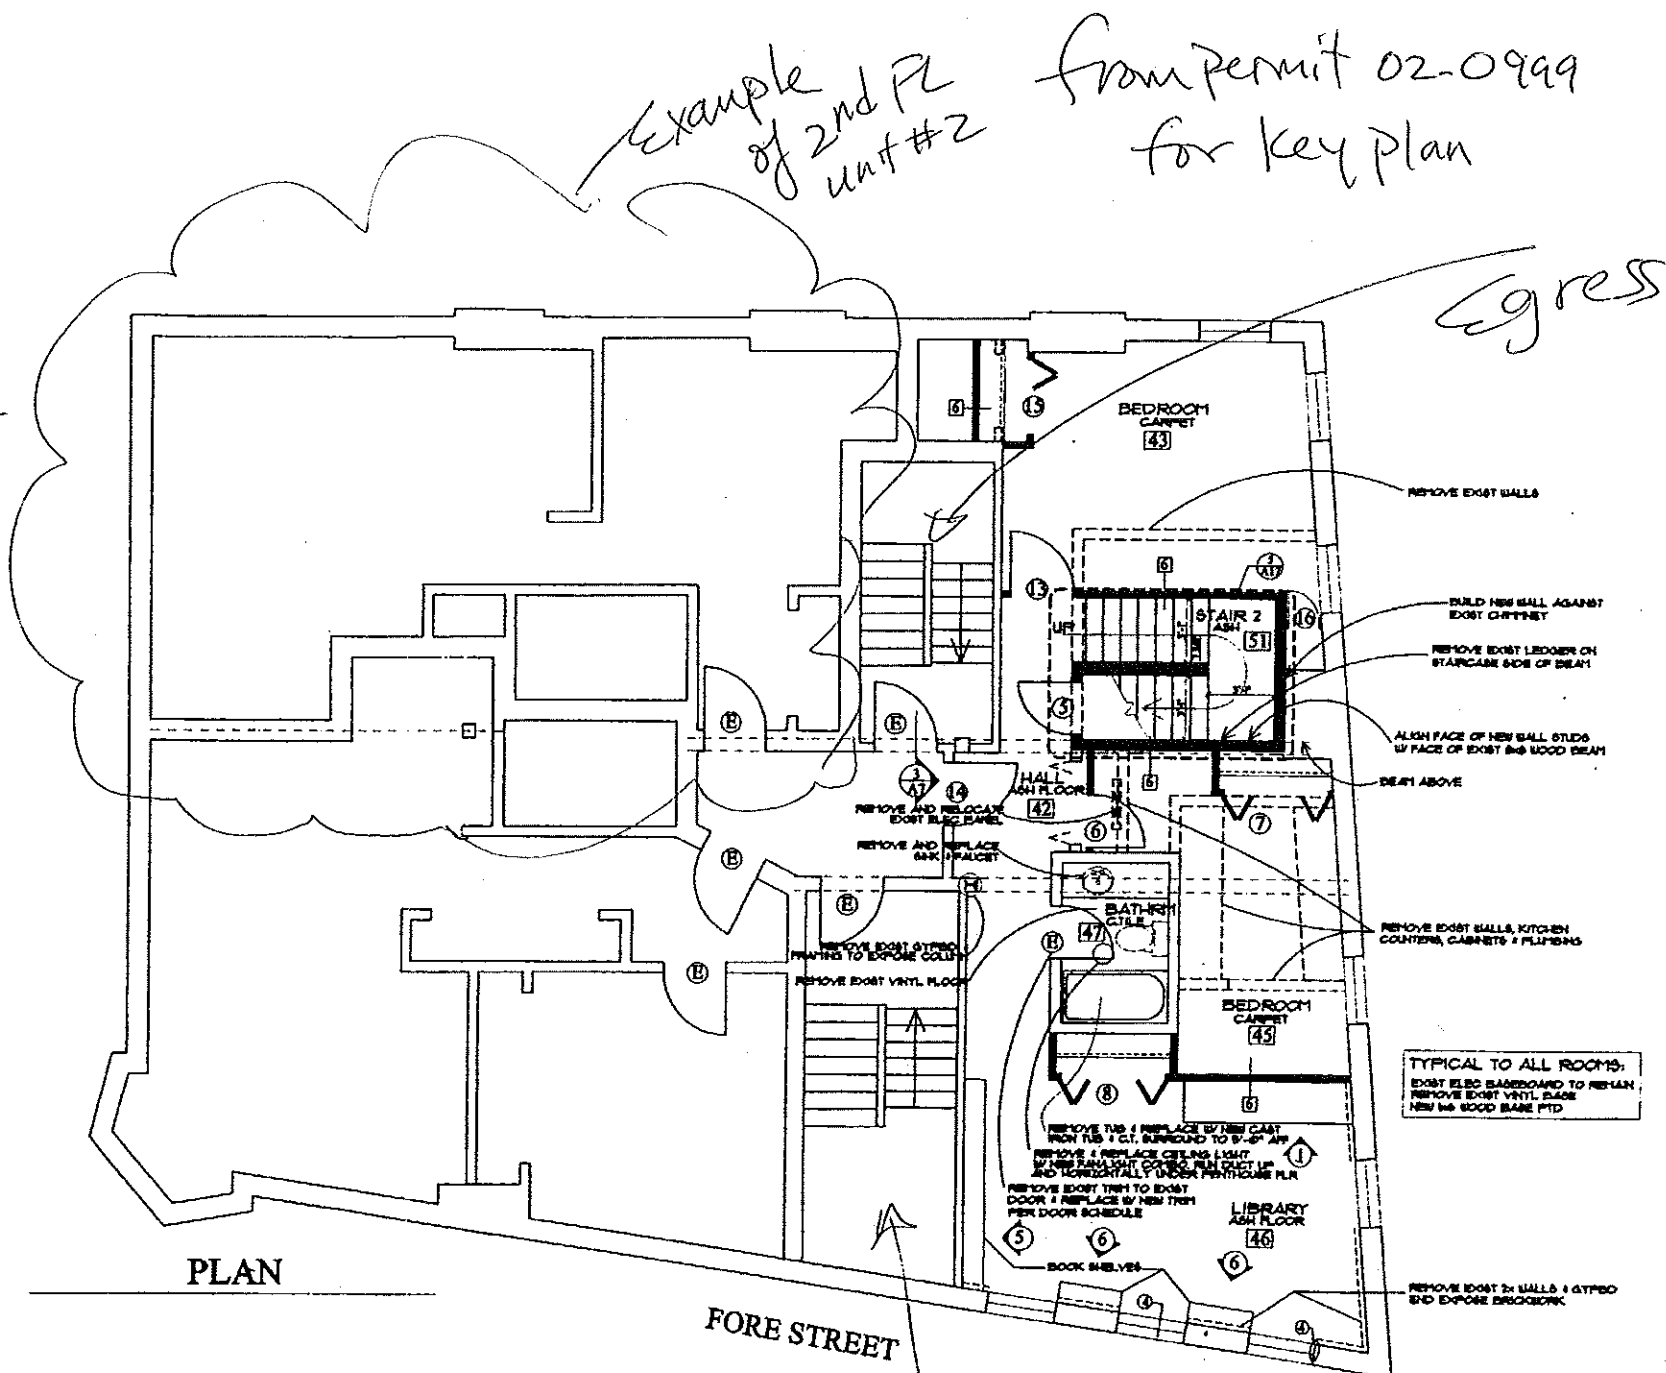 Example
of 2nd FL
unit #2
from permit 02-0999
for key plan
Egress
6
15
BEDROOM
CARPET
43
REMOVE EXIST WALLS
13
6
3
A17
UP
STAIR 2
ASH
51
16
BUILD NEW WALL AGAINST
EXIST CHIMNEY
REMOVE EXIST LEDGER ON
STAIRCASE SIDE OF BEAM
5
3'-3"
ALIGN FACE OF NEW WALL STUDS
W/ FACE OF EXIST 8x8 WOOD BEAM
BEAM ABOVE
E
E
3
A7
14
HALL
ASH FLOOR
42
6
REMOVE AND RELOCATE
EXIST ELEC PANEL
6
7
REMOVE AND REPLACE
SINK & FAUCET
E
E
BATHRM
C.TILE
47
E
REMOVE EXIST GYPBD
FRAMING TO EXPOSE COLUMN
REMOVE EXIST VINYL FLOOR
E
REMOVE EXIST WALLS, KITCHEN
COUNTERS, CABINETS & PLUMBING
BEDROOM
CARPET
45
TYPICAL TO ALL ROOMS:
EXIST ELEC BASEBOARD TO REMAIN
REMOVE EXIST VINYL BASE
NEW 1x6 WOOD BASE PTD
8
6
REMOVE TUB & REPLACE W/ NEW CAST
IRON TUB & C.T. SURROUND TO AFF
REMOVE & REPLACE CEILING LIGHT
W/ NEW FAN/LIGHT COMBO, RUN DUCT UP
AND HORIZONTALLY UNDER PENTHOUSE FLR
1
REMOVE EXIST TRIM TO EXIST
DOOR & REPLACE W/ NEW TRIM
PER DOOR SCHEDULE
LIBRARY
ASH FLOOR
46
5
6
6
BOOK SHELVES
4
4
REMOVE EXIST 2x WALLS & GYPBD
AND EXPOSE BRICKWORK
PLAN
FORE STREET